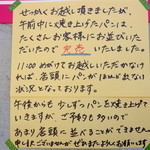 せっかくお越し頂きましたが
午前中に焼き上げたパンは、
たくさんお客様にお並びいた
だいたので 完売 いたしました。
11:00 めがけてお越しいただかなけ
れば、店頭にパンがほとんど無い
状況となっております。
午後からも少しずつパンを焼き上げて
いきますが、ご予約も多いので
あまり店頭に並べることができません
申し訳ございませんがまたよろしくお願いします